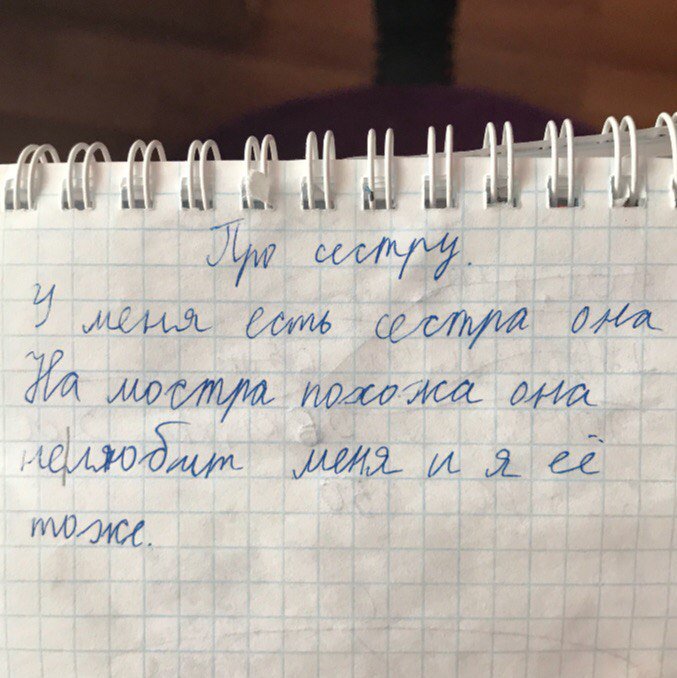 Про сестру.
У меня есть сестра она
На мостра похожа она
не|любит меня и я её
тоже.